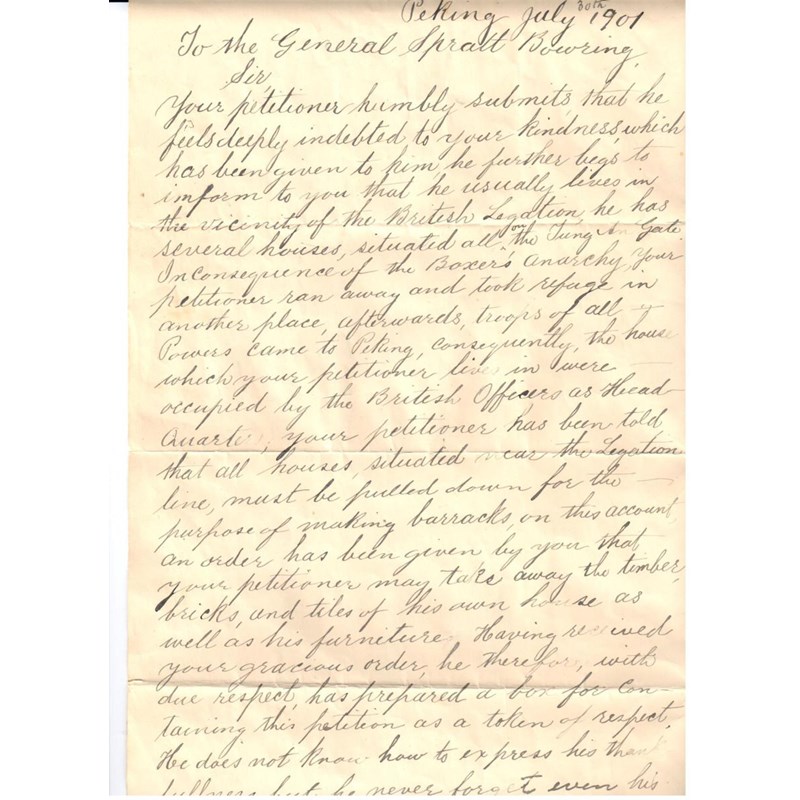 Peking July 30th 1901
To the General Spratt Bowring,
Sir,
Your petitioner humbly submits, that he
feels deeply indebted to your kindness, which
has been given to him he further begs to
imform to you that he usually lives in
the vicinity of the British Legation, he has
several houses, situated all on the Tung An Gate
Inconsequence of the Boxer's anarchy, Your
petitioner ran away and took refuge in
another place, afterwards, troops of all
Powers came to Peking, consequently, the house
which your petitioner lives in were
occupied by the British Officers as Head
Quarte, your petitioner has been told
that all houses, situated near the Legation
line, must be pulled down for the
purpose of making barracks, on this account,
an order has been given by you that
your petitioner may take away the timber,
bricks, and tiles of his own house as
well as his furniture. Having received
your gracious order, he therefore, with
due respect, has prepared a box for con-
taining this petition as a token of respect.
He does not know how to express his thank
fullness but he never forget even his